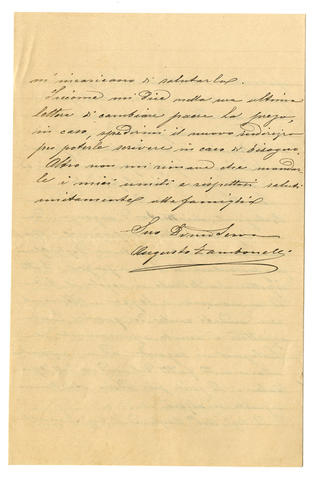 mi incaricano di salutarla.
Siccome mi dice nella sua ultima
lettera di cambiare paese la prego,
in caso, spedirmi il nuovo indirizzo
per poterle scrivere in caso di bisogno.
Altro non mi rimane che mandar
le i miei umili e rispettosi saluti
unitamente alla famiglia
Suo Devmo Servo
Augusto Zambonelli